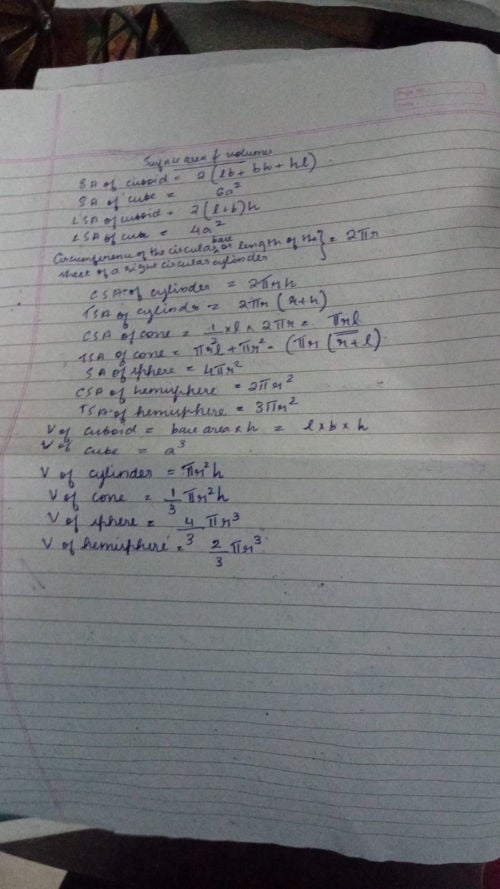 Surface area & volumes
SA of cuboid = 2(lb + bh + hl)
SA of cube = 6a²
LSA of cuboid = 2(l+b)h
LSA of cube = 4a²
Circumference of the circular base or length of the } = 2πr
sheet of a right circular cylinder
CSA of cylinder = 2πrh
TSA of cylinder = 2πr (r+h)
CSA of cone = 1/2 × l × 2πr = πrl
TSA of cone = πrl + πr² = (πr (r+l)
SA of sphere = 4πr²
CSA of hemisphere = 2πr²
TSA of hemisphere = 3πr²
V of cuboid = base area × h = l × b × h
V of cube = a³
V of cylinder = πr²h
V of cone = 1/3 πr²h
V of sphere = 4/3 πr³
V of hemisphere = 2/3 πr³